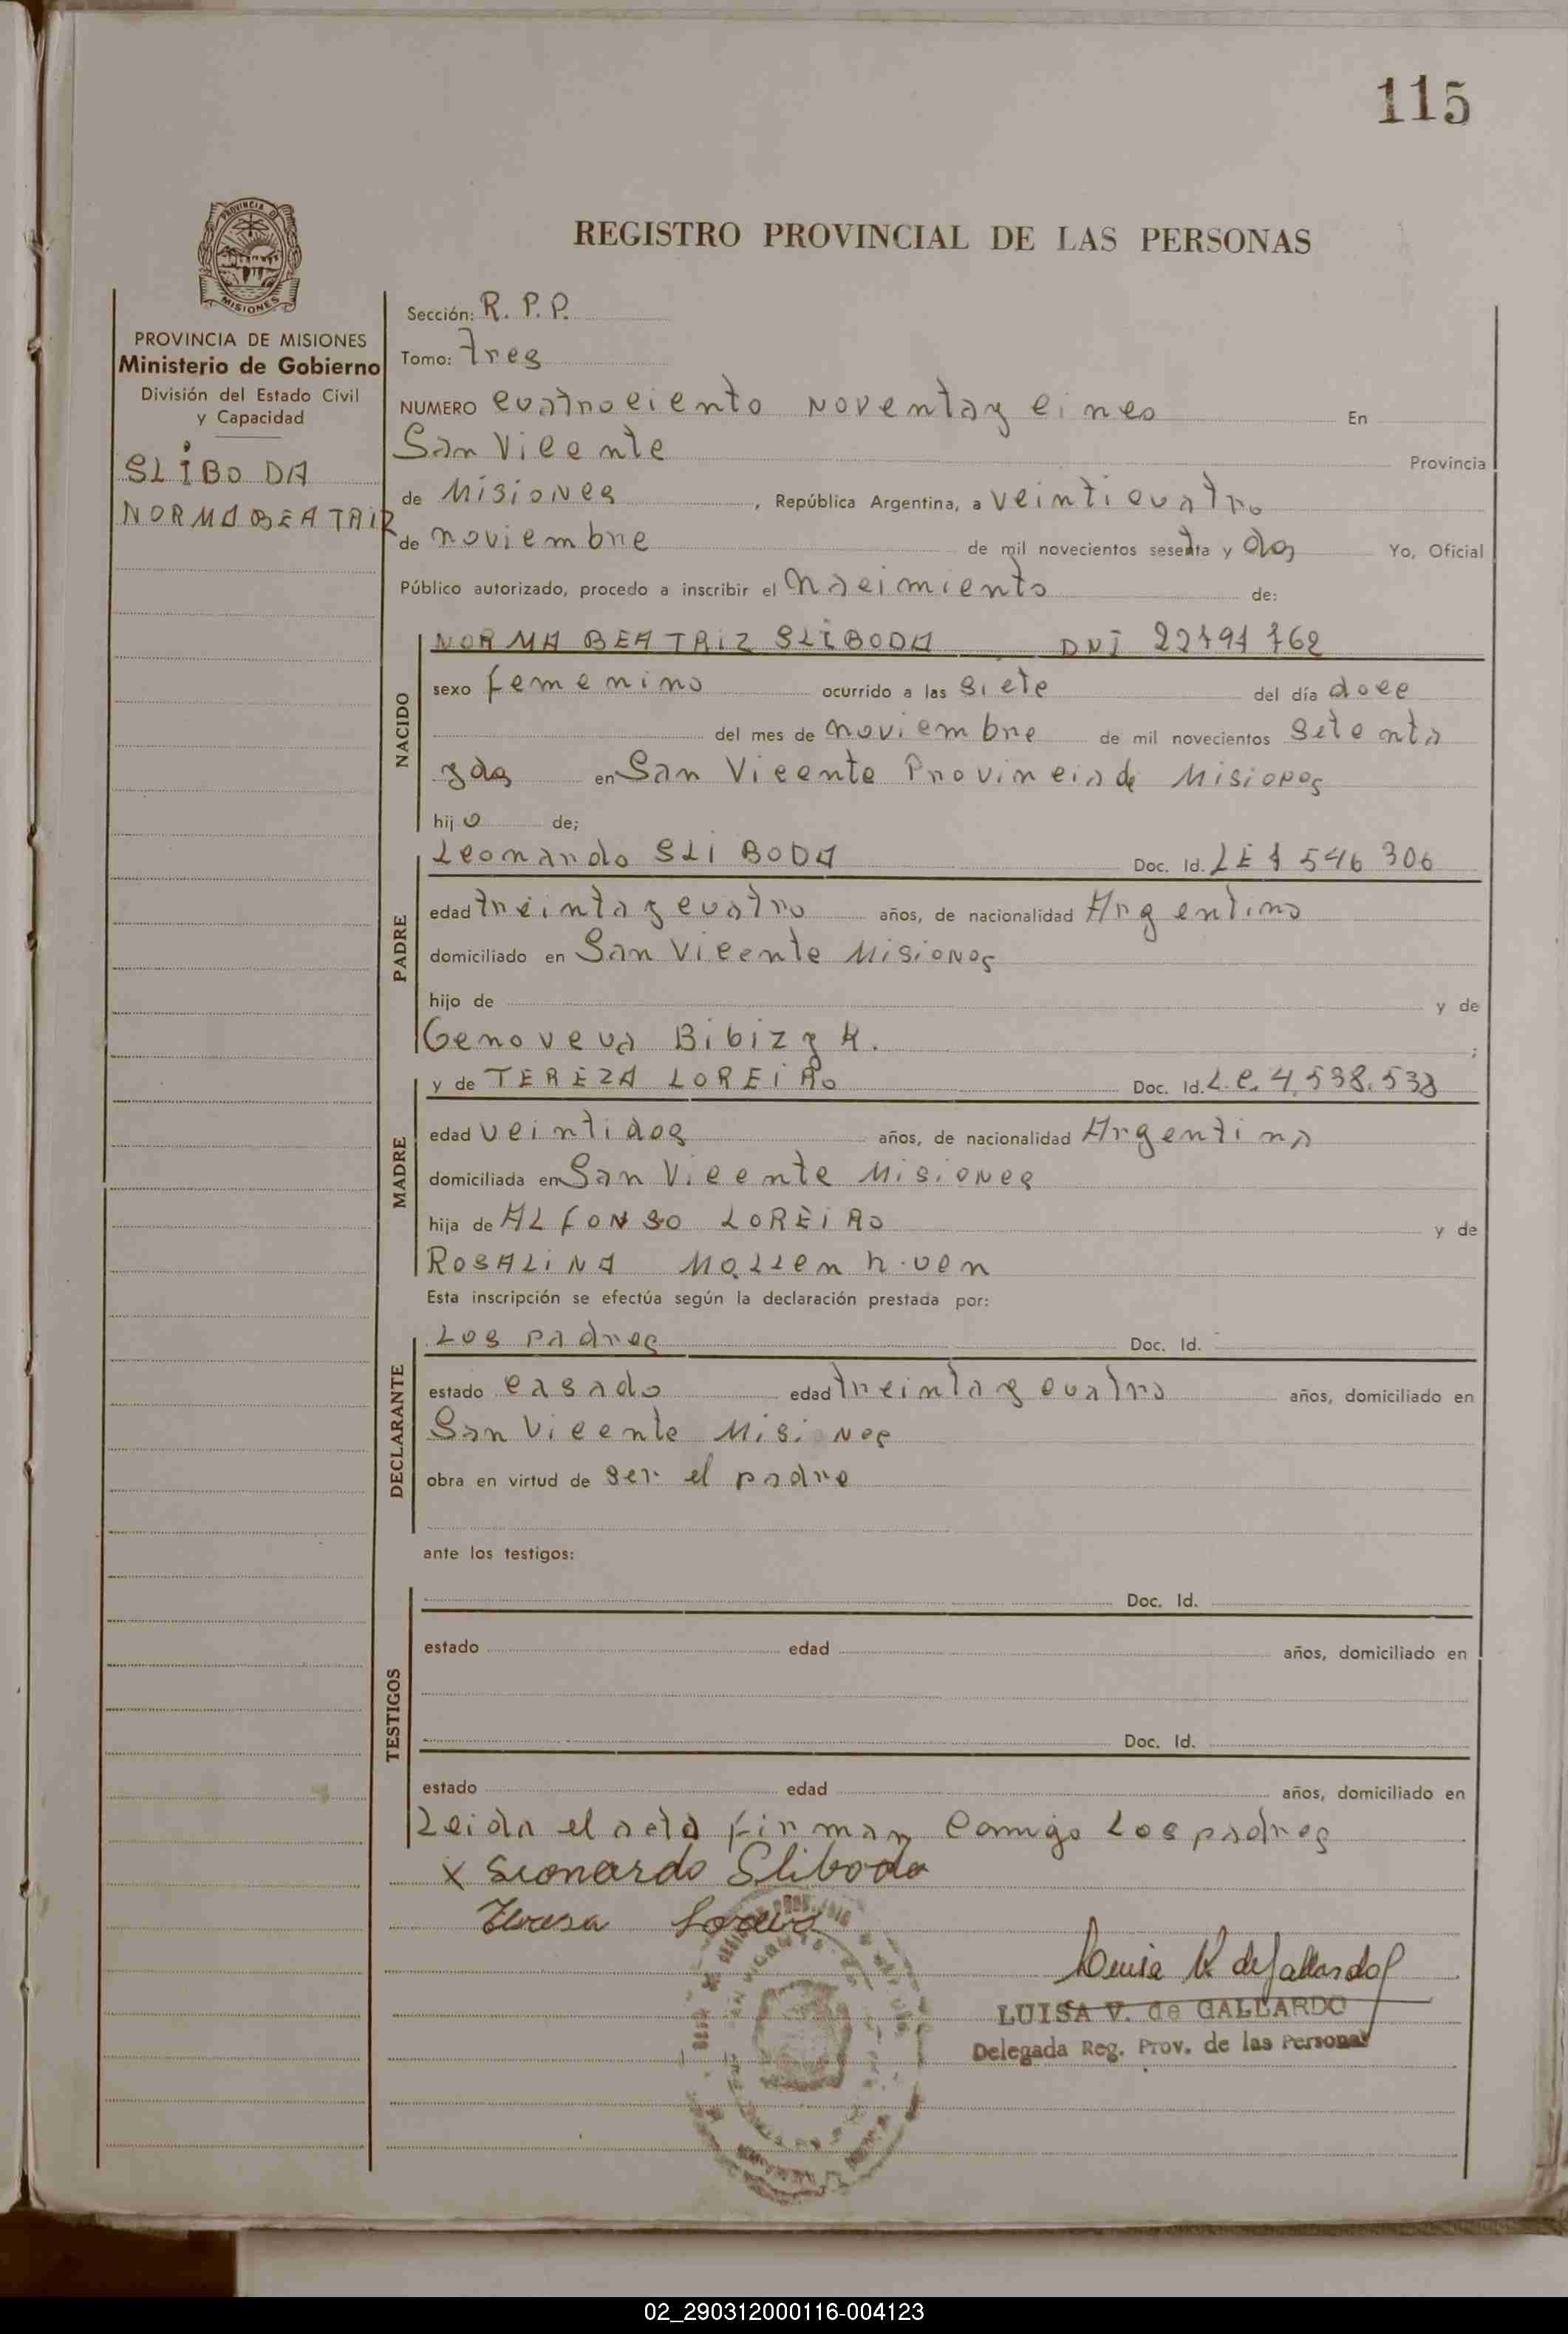 115
REGISTRO PROVINCIAL DE LAS PERSONAS
PROVINCIA DE
MISIONES
PROVINCIA DE MISIONES
Ministerio de Gobierno
División del Estado Civil
y Capacidad
SLIBODA
NORMA BEATRIZ
Sección: R. P. P.
Tomo: Tres
NUMERO cuatrociento noventa y cinco En
San Vicente Provincia
de Misiones , República Argentina, a veinticuatro
de noviembre de mil novecientos sesenta y dos Yo, Oficial
Público autorizado, procedo a inscribir el nacimiento de:
NACIDO
NORMA BEATRIZ SLIBODA DNI
sexo femenino ocurrido a las siete del día doce
del mes de noviembre de mil novecientos setenta
y dos en San Vicente Provincia de Misiones
hijo de;
PADRE
Leonardo SLIBODA Doc. Id. 546 306
edad treinta y cuatro años, de nacionalidad Argentino
domiciliado en San Vicente Misiones
hijo de y de
Genoveva ;
MADRE
y de TEREZA LOREIRO Doc. Id. L.C. 4.538.538
edad veintidos años, de nacionalidad Argentina
domiciliada en San Vicente Misiones
hija de ALFONSO LOREIRO y de
ROSALINA
Esta inscripción se efectúa según la declaración prestada por:
DECLARANTE
Los padres Doc. Id.
estado casado edad treinta y cuatro años, domiciliado en
San Vicente Misiones
obra en virtud de ser el padre
ante los testigos:
TESTIGOS
Doc. Id.
estado edad años, domiciliado en
Doc. Id.
estado edad años, domiciliado en
Leida el acta firman comigo Los padres
x Leonardo Sliboda
Teresa Loreiro
Luisa V. de Gallardo
LUISA V. de GALLARDO
Delegada Reg. Prov. de las Personas
02_290312000116-004123